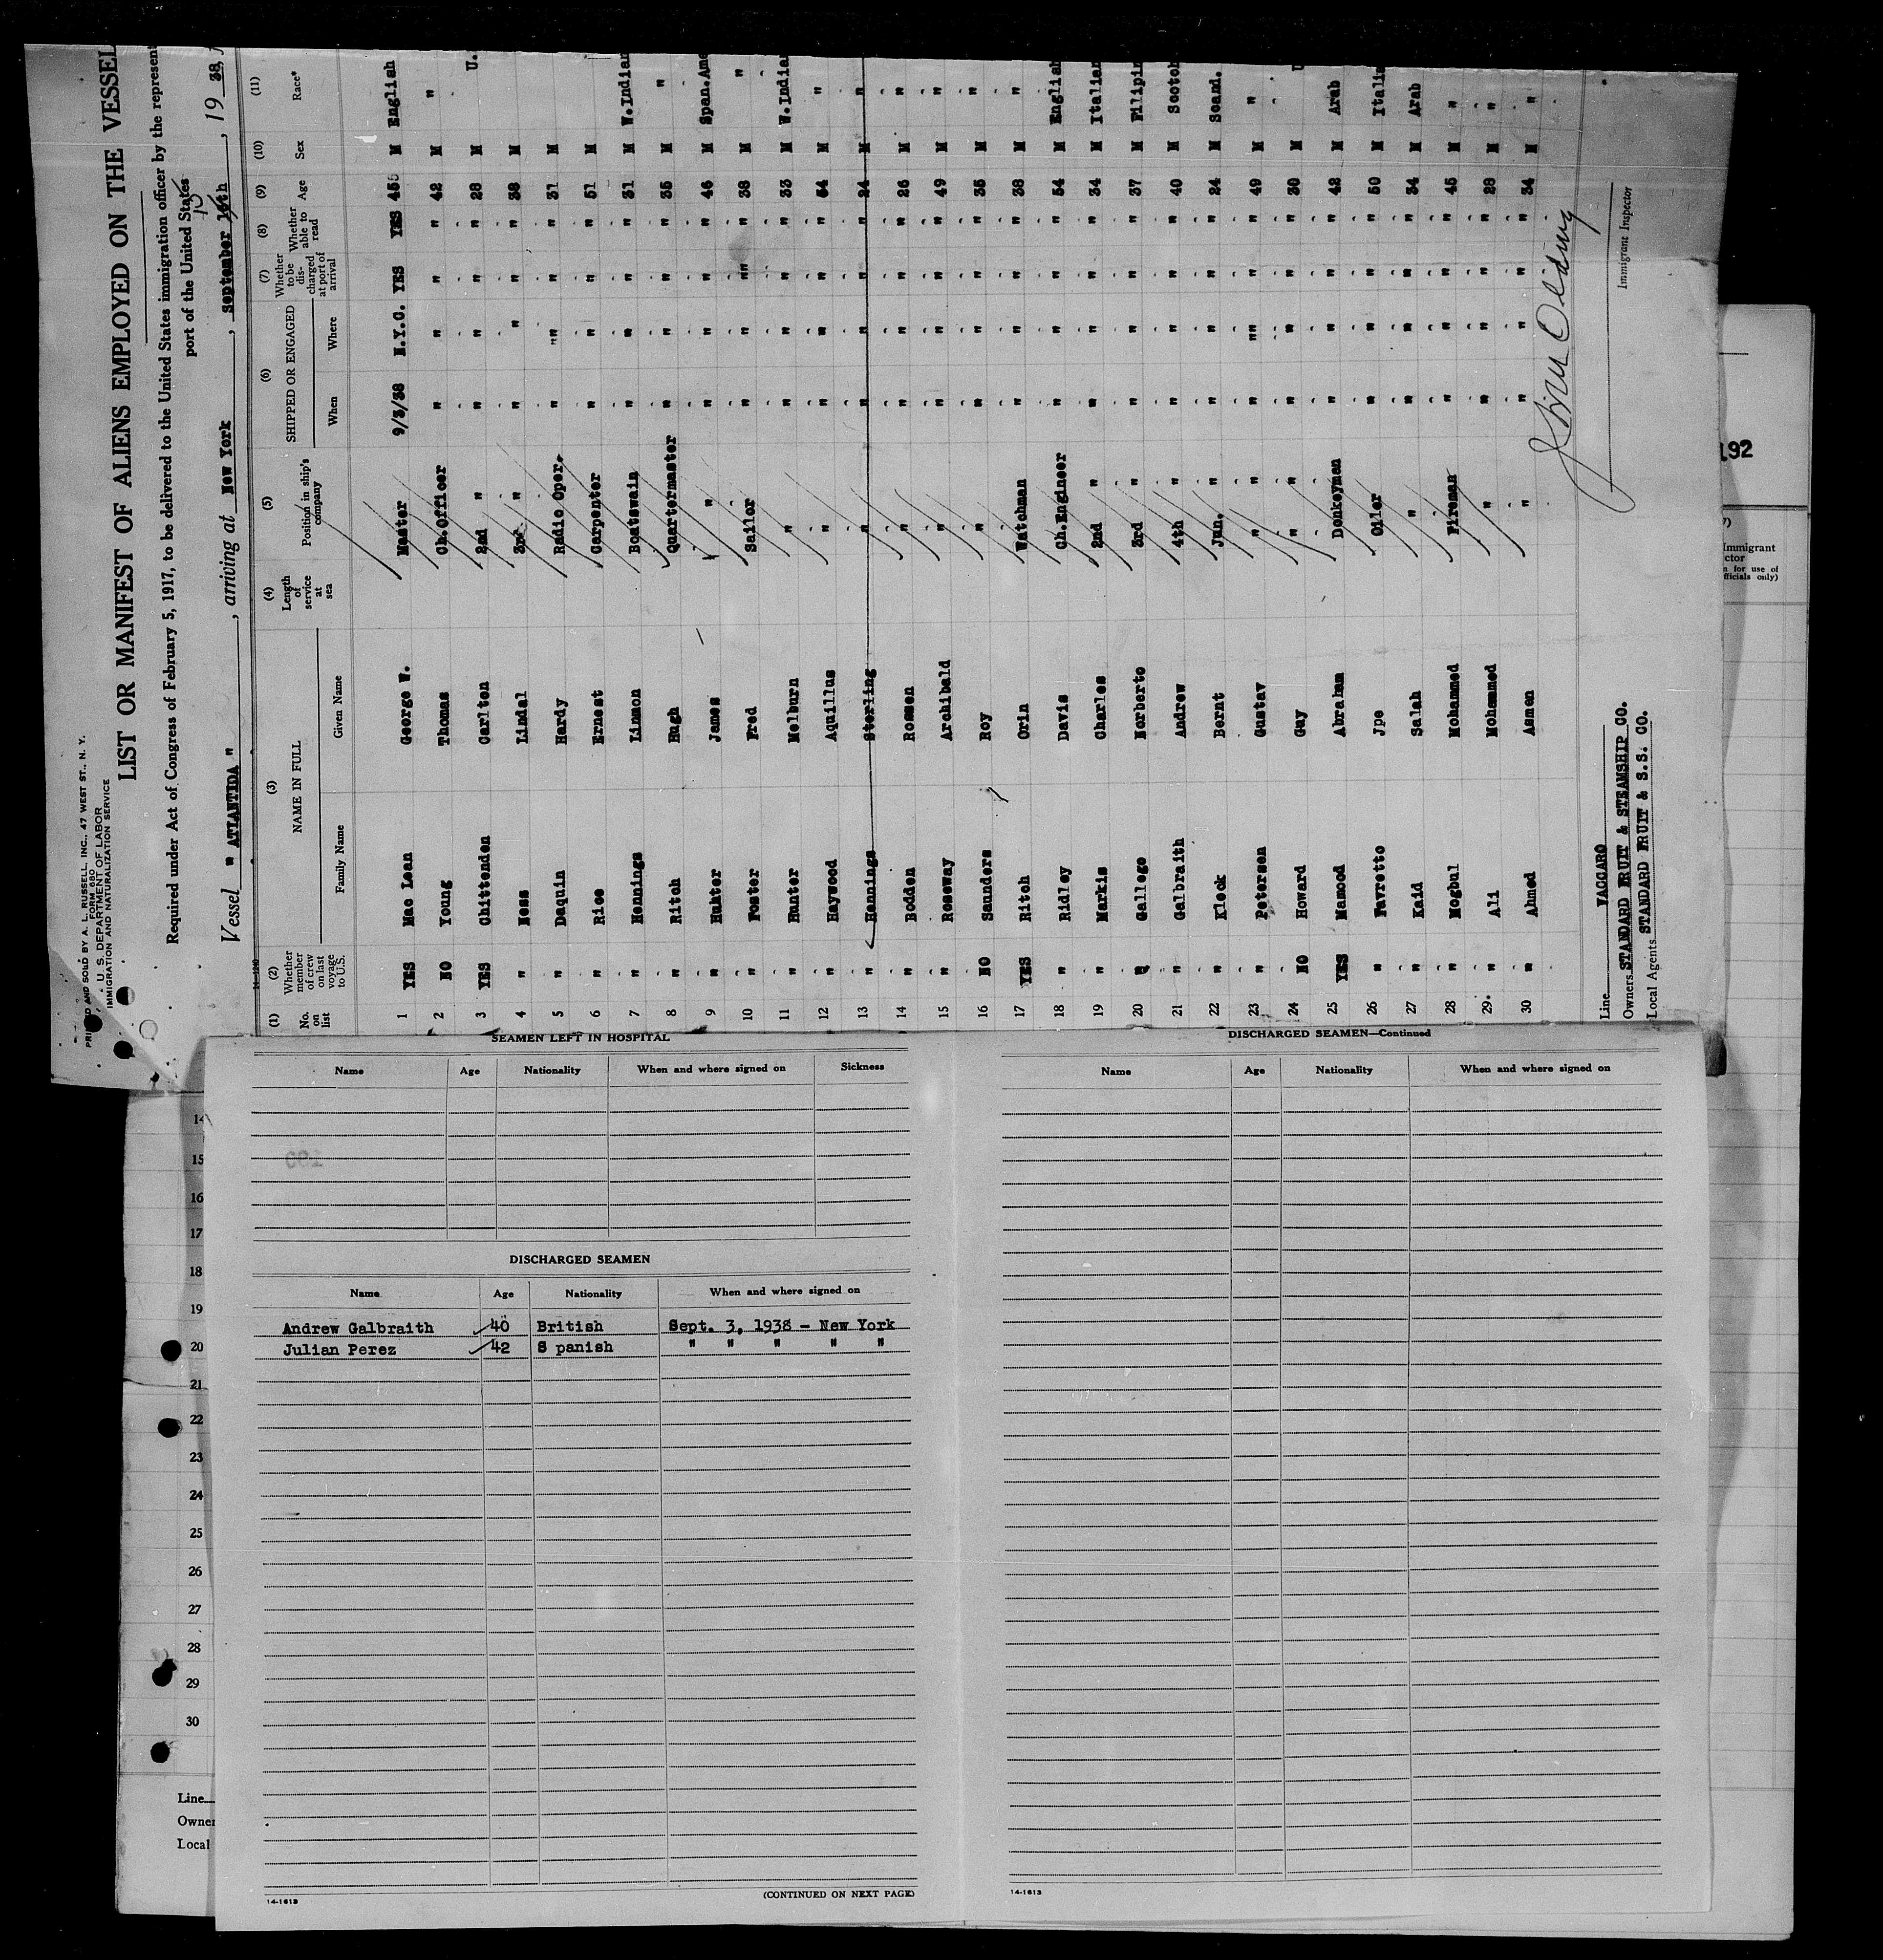 PRINTED AND SOLD BY A. L. RUSSELL, INC., 47 WEST ST., N. Y.
FORM 680
U. S. DEPARTMENT OF LABOR
IMMIGRATION AND NATURALIZATION SERVICE
LIST OR MANIFEST OF ALIENS EMPLOYED ON THE VESSEL
Required under Act of Congress of February 5, 1917, to be delivered to the United States immigration officer by the represent
port of the United States
Vessel " ATLANTIDA " , arriving at New York , September 15 , 19 38
(1) (2) (3) (4) (5) (6) (7) (8) (9) (10) (11)
No. on list Whether member of crew on last voyage to U.S. NAME IN FULL Length of service at sea Position in ship's company SHIPPED OR ENGAGED Whether to be discharged at port of arrival Whether able to read Age Sex Race*
Family Name Given Name When Where
1 YES Mac Lean George W. Master 9/3/38 N.Y.C. YES YES 45 M English
2 NO Young Thomas Ch.Officer " " " " 42 M "
3 YES Chittenden Carlton 2nd " " " " " 28 M U.
4 " Ness Lindal 3rd " " " " " 38 M
5 " Daquin Hardy Radio Oper. " "" " " 31 M
6 " Rice Ernest Carpenter " " " " 51 M
7 " Hennings Linmon Boatswain " " " " 31 M W.Indian
8 " Ritch Hugh Quartermaster " " " " 35 M "
9 " Hunter James " " " " " 46 M Span.Ame
10 " Foster Fred Sailor " " "" " 38 M "
11 " Hunter Melburn " " " " " 33 M W.Indian
12 " Haywood Aquillus " " " " " 64 M "
13 " Hennings Sterling " " " " " 24 M "
14 " Bodden Rossen " " " " " 26 M "
15 " Roseway Archibald " " " " " 49 M "
16 NO Saunders Roy " " " " " 35 M "
17 YES Ritch Orin Watchman " " " " 38 M "
18 " Ridley Davis Ch.Engineer " " " " 54 M English
19 " Markis Charles 2nd " " " " " 34 M Italian
20 " Gallego Norberto 3rd " " " " " 37 M Filipin
21 " Galbraith Andrew 4th " " " " " 40 M Scotch
22 " Kleck Bernt Jun. " " " " " 24 M Scand.
23 " Petersen Gustav " " " "" " " 49 M "
24 NO Howard Guy " " " " " " 30 M U
25 YES Mamood Abraham Donkeyman " " " " 42 M Arab
26 " Favretto Jpe Oiler " " " " 50 M Italia
27 " Kaid Salah " " " " " 34 M Arab
28 " Mogbul Mohammed Fireman " " " " 45 M "
29 " Ali Mohammed " " " " " 28 M "
30 " Ahmed Asmen " " " " " 34 M "
Line VACCARO
Owners STANDARD FRUIT & STEAMSHIP CO.
Local Agents STANDARD FRUIT & S.S. CO.
Immigrant Inspector
192
Immigrant
ctor
n for use of
fficials only)
SEAMEN LEFT IN HOSPITAL
Name Age Nationality When and where signed on Sickness
DISCHARGED SEAMEN
Name Age Nationality When and where signed on
Andrew Galbraith 40 British Sept. 3, 1938 - New York
Julian Perez 42 S panish " " " " "
14-1613
(CONTINUED ON NEXT PAGE)
DISCHARGED SEAMEN—Continued
Name Age Nationality When and where signed on
14-1613
14
15
16
17
18
19
20
21
22
23
24
25
26
27
28
29
30
Line
Owner
Local